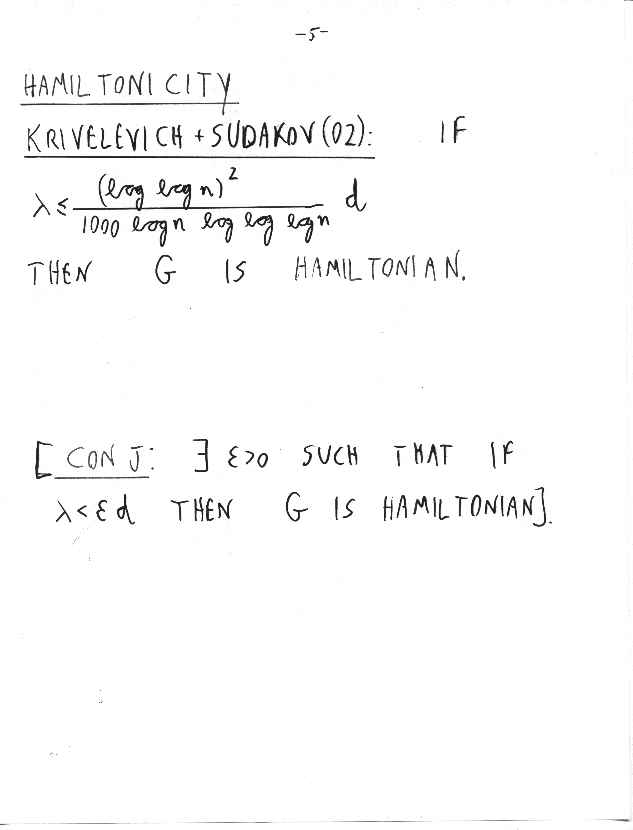 -5-
HAMILTONICITY
KRIVELEVICH + SUDAKOV (02): IF
λ ≤ (log log n)² / 1000 log n log log log n d
THEN G IS HAMILTONIAN.
[CONJ: ∃ ε>0 SUCH THAT IF
λ < εd THEN G IS HAMILTONIAN].